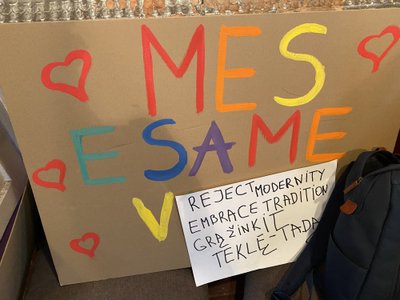 MES
ESAME
V
REJECT MODERNITY
EMBRACE TRADITION
GRĄŽINKIT
TEKLĘ TADA